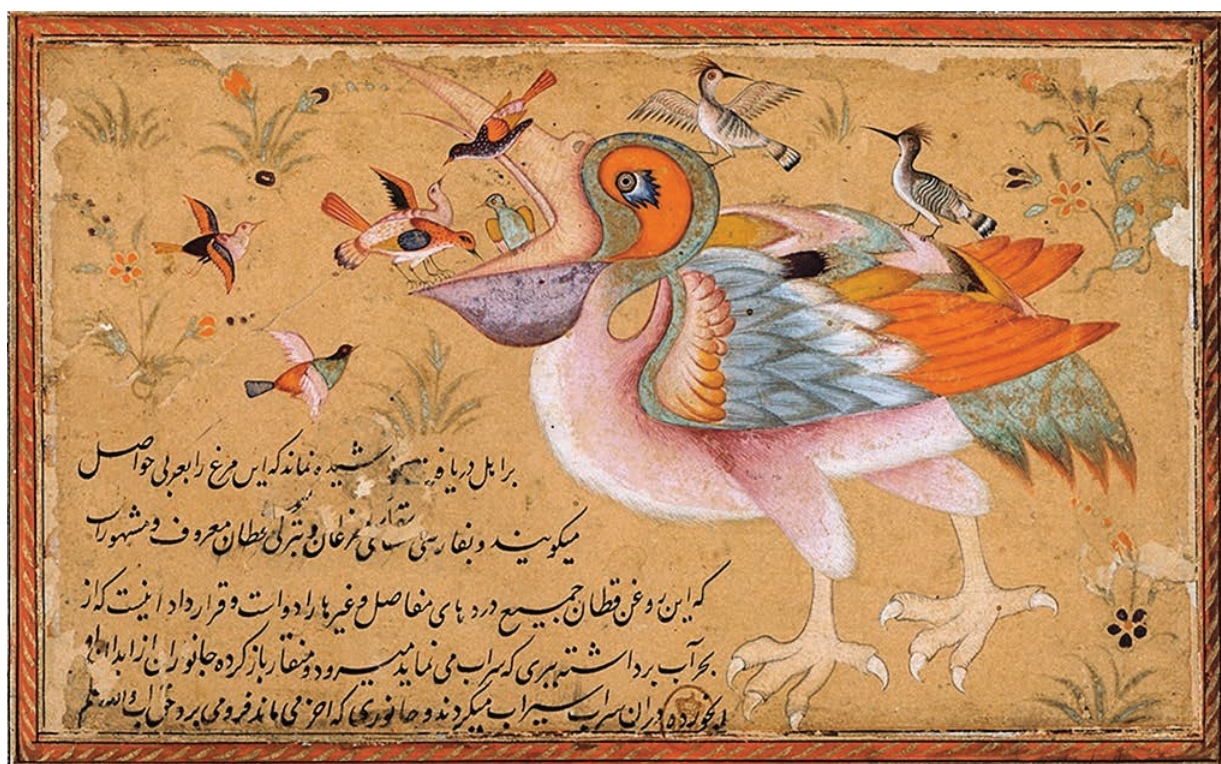 بر اهل دریا شیده نماند که این مرغ را بعربی حواصل
میکویند و بفارسی سقای مرغان و بترکی قطان معروف و مشهور است
که این روغن قطان جمیع درد های مفاصل و غیرها را دوات و قرارداد اینست که از
بحر آب برداشته ببری که سراب می نماید میرود و منقار باز کرده جانوران از
خورده در ان سراب سیراب میکردند و جانوری که اخر می ماند فرو می برد